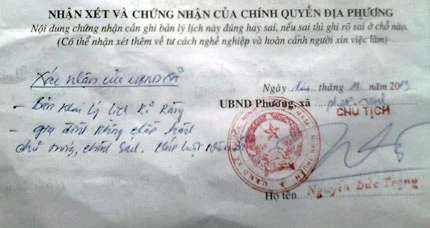 NHẬN XÉT VÀ CHỨNG NHẬN CỦA CHÍNH QUYỀN ĐỊA PHƯƠNG
Nội dung chứng nhận cần ghi bản lý lịch này đúng hay sai, nếu sai thì ghi rõ sai ở chỗ nào.
(Có thể nhận xét thêm về tư cách nghề nghiệp và hoàn cảnh người xin việc làm)
Xác nhận của UBND xã
Ngày tháng năm 20
- Bản khai lý lịch rõ ràng
UBND Phường, xã
CHỦ TỊCH
- gia đình không chấp hành
chủ trương, chính sách, pháp luật
Nguyễn Đức Trọng
Họ tên